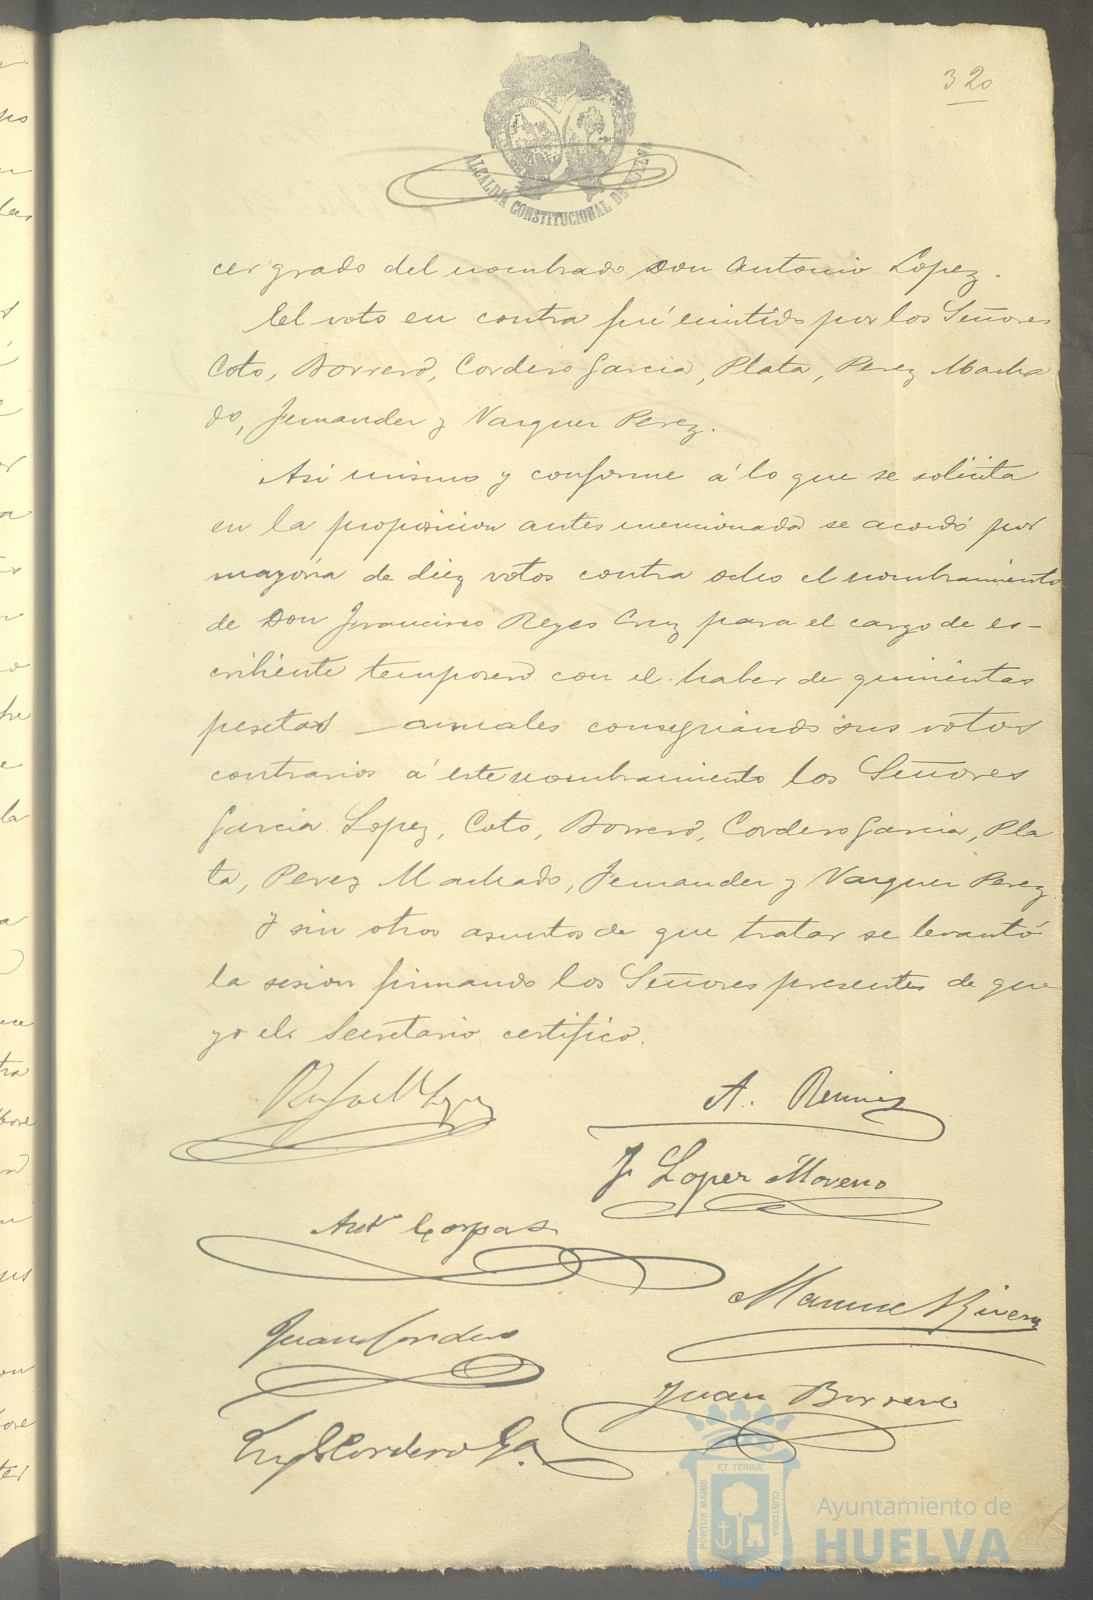 320
ALCALDÍA CONSTITUCIONAL DE HUELVA
cer grado del nombrado Don Antonio Lopez.
El voto en contra fué emitido por los Señores
Coto, Borrero, Cordero Garcia, Plata, Perez Macha
do, Fernandez y Vazquez Perez.
Asi mismo y conforme á lo que se solicita
en la proposicion antes mencionada se acordó por
mayoria de diez votos contra ocho el nombramiento
de Don Francisco Reyes Cruz para el cargo de es-
cribiente temporero con el haber de quinientas
pesetas anuales consignando sus votos
contrarios á este nombramiento los Señores
Garcia Lopez, Coto, Borrero, Cordero Garcia, Pla
ta, Perez Machado, Fernandez y Vazquez Perez
Y sin otros asuntos de que tratar se levantó
la sesion firmando los Señores presentes de que
yo el Secretario certifico.
Rafael Lopez
A.
J. Lopez Moreno
Antº Corpas
Manuel Rivera
Juan Cordero
Juan Borrero
Cordero Ga.
ET TERRÆ
PORTUS MARIS
CUSTODIA
Ayuntamiento de
HUELVA